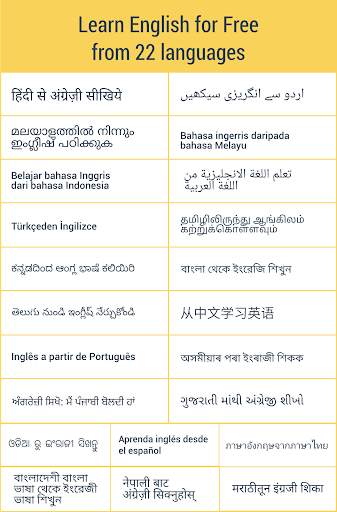 Learn English for Free
from 22 languages
हिंदी से अंग्रेज़ी सीखिये
اردو سے انگریزی سیکھیں
മലയാളത്തിൽ നിന്നും
ഇംഗ്ലീഷ് പഠിക്കുക
Bahasa ingerris daripada
bahasa Melayu
Belajar bahasa Inggris
dari bahasa Indonesia
تعلم اللغة الانجليزية من
اللغة العربية
Türkçeden İngilizce
தமிழிலிருந்து ஆங்கிலம்
கற்றுக்கொள்ளவும்
ಕನ್ನಡದಿಂದ ಆಂಗ್ಲ ಭಾಷೆ ಕಲಿಯಿರಿ
বাংলা থেকে ইংরেজি শিখুন
తెలుగు నుండి ఇంగ్లీష్ నేర్చుకోండి
从中文学习英语
Inglês a partir de Português
অসমীয়াৰ পৰা ইংৰাজী শিকক
ਅੰਗਰੇਜ਼ੀ ਸਿਖੋ: ਮੈਂ ਪੰਜਾਬੀ ਬੋਲਦੀ ਹਾਂ
ગુજરાતી માંથી અંગ્રેજી શીખો
ଓଡିଆ ରୁ ଇଂରାଜୀ ସିଖନ୍ତୁ
Aprenda inglés desde
el español
ภาษาอังกฤษจากภาษาไทย
বাংলাদেশী বাংলা
ভাষা থেকে ইংরেজী
ভাষা শিখুন
नेपाली बाट
अंग्रेज़ी सिक्नुहोस्
मराठीतून इंग्रजी शिका